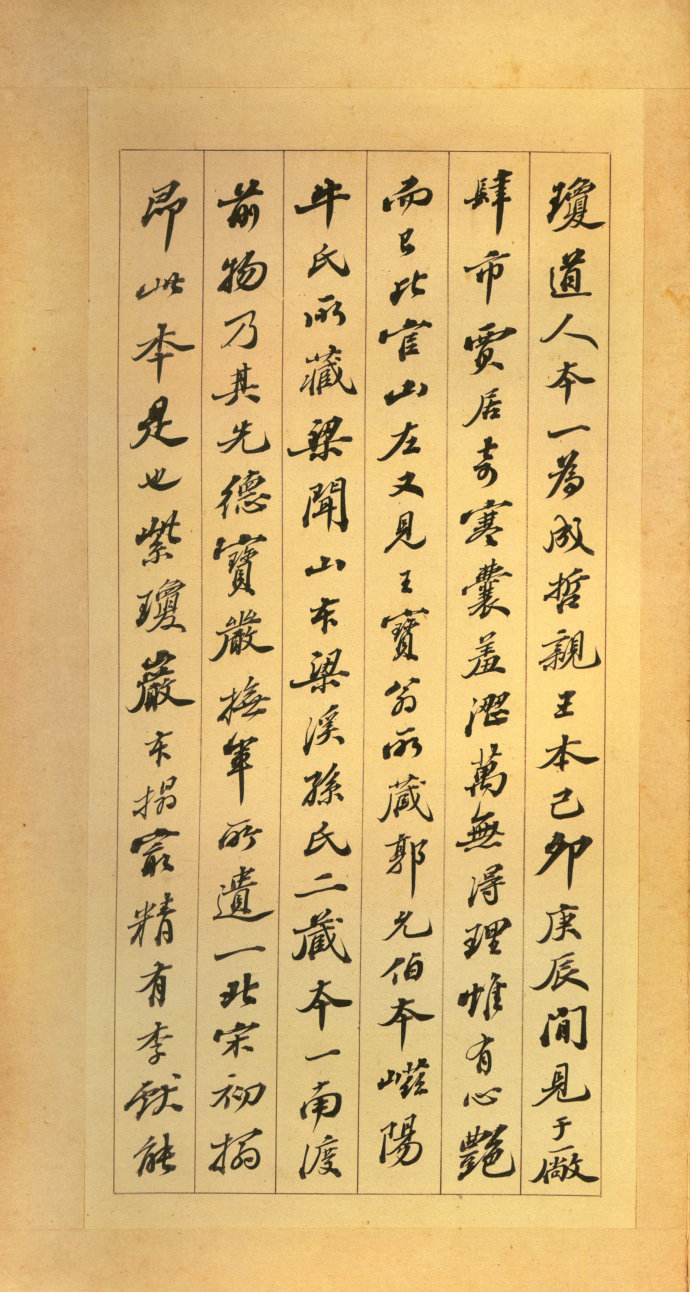 瓊道人本一為成哲親王本己卯庚辰間見于廠
肆市賈居奇寒囊羞澀萬無得理惟有心豔
而已比官山左又見王寶翁所藏郭允伯本嶧陽
牛氏所藏梁聞山本梁溪孫氏二藏本一南渡
前物乃其先德寶巖撫軍所遺一北宋初搨
即此本是也紫瓊巖本搨最精有李獻能